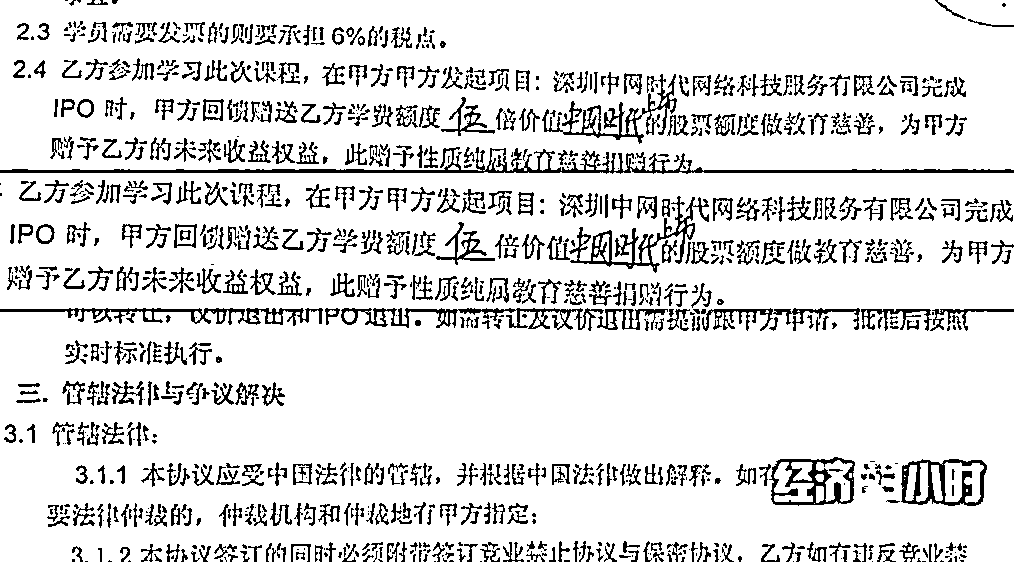 2.3 学员需要发票的则要承担6%的税点。
2.4 乙方参加学习此次课程，在甲方甲方发起项目：深圳中网时代网络科技服务有限公司完成
IPO 时，甲方回馈赠送乙方学费额度 伍 倍价值中网时代上市的股票额度做教育慈善，为甲方
赠予乙方的未来收益权益，此赠予性质纯属教育慈善捐赠行为。
乙方参加学习此次课程，在甲方甲方发起项目：深圳中网时代网络科技服务有限公司完成
IPO 时，甲方回馈赠送乙方学费额度 伍 倍价值中网时代上市的股票额度做教育慈善，为甲方
赠予乙方的未来收益权益，此赠予性质纯属教育慈善捐赠行为。
可以转让，议价退出和IPO退出。如需转让及议价退出需提前跟甲方申请，批准后按照
实时标准执行。
三. 管辖法律与争议解决
3.1 管辖法律：
3.1.1 本协议应受中国法律的管辖，并根据中国法律做出解释。如有
经济 小时
要法律仲裁的，仲裁机构和仲裁地有甲方指定；
3.1.2 本协议签订的同时必须附带签订竞业禁止协议与保密协议，乙方如有违反竞业禁